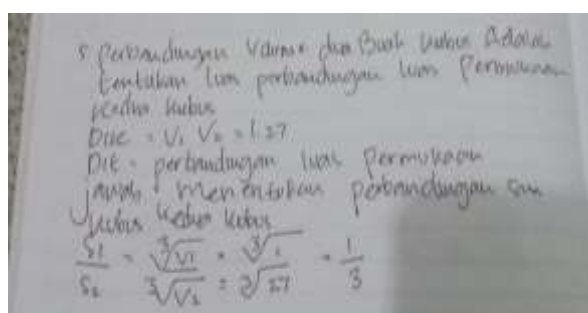 5 Perbandungan Volume dua Buah kubus Adalah
tentukan luas perbandingan luas Permukaan
kedua kubus
Dik = V₁ V₂ = 1.27
Dit = perbandingan luas permukaan
jawab menentukan perbandingan
kubus kedua kubus
S1/S2 = ∛V1/∛V2 = ∛1/∛27 = 1/3